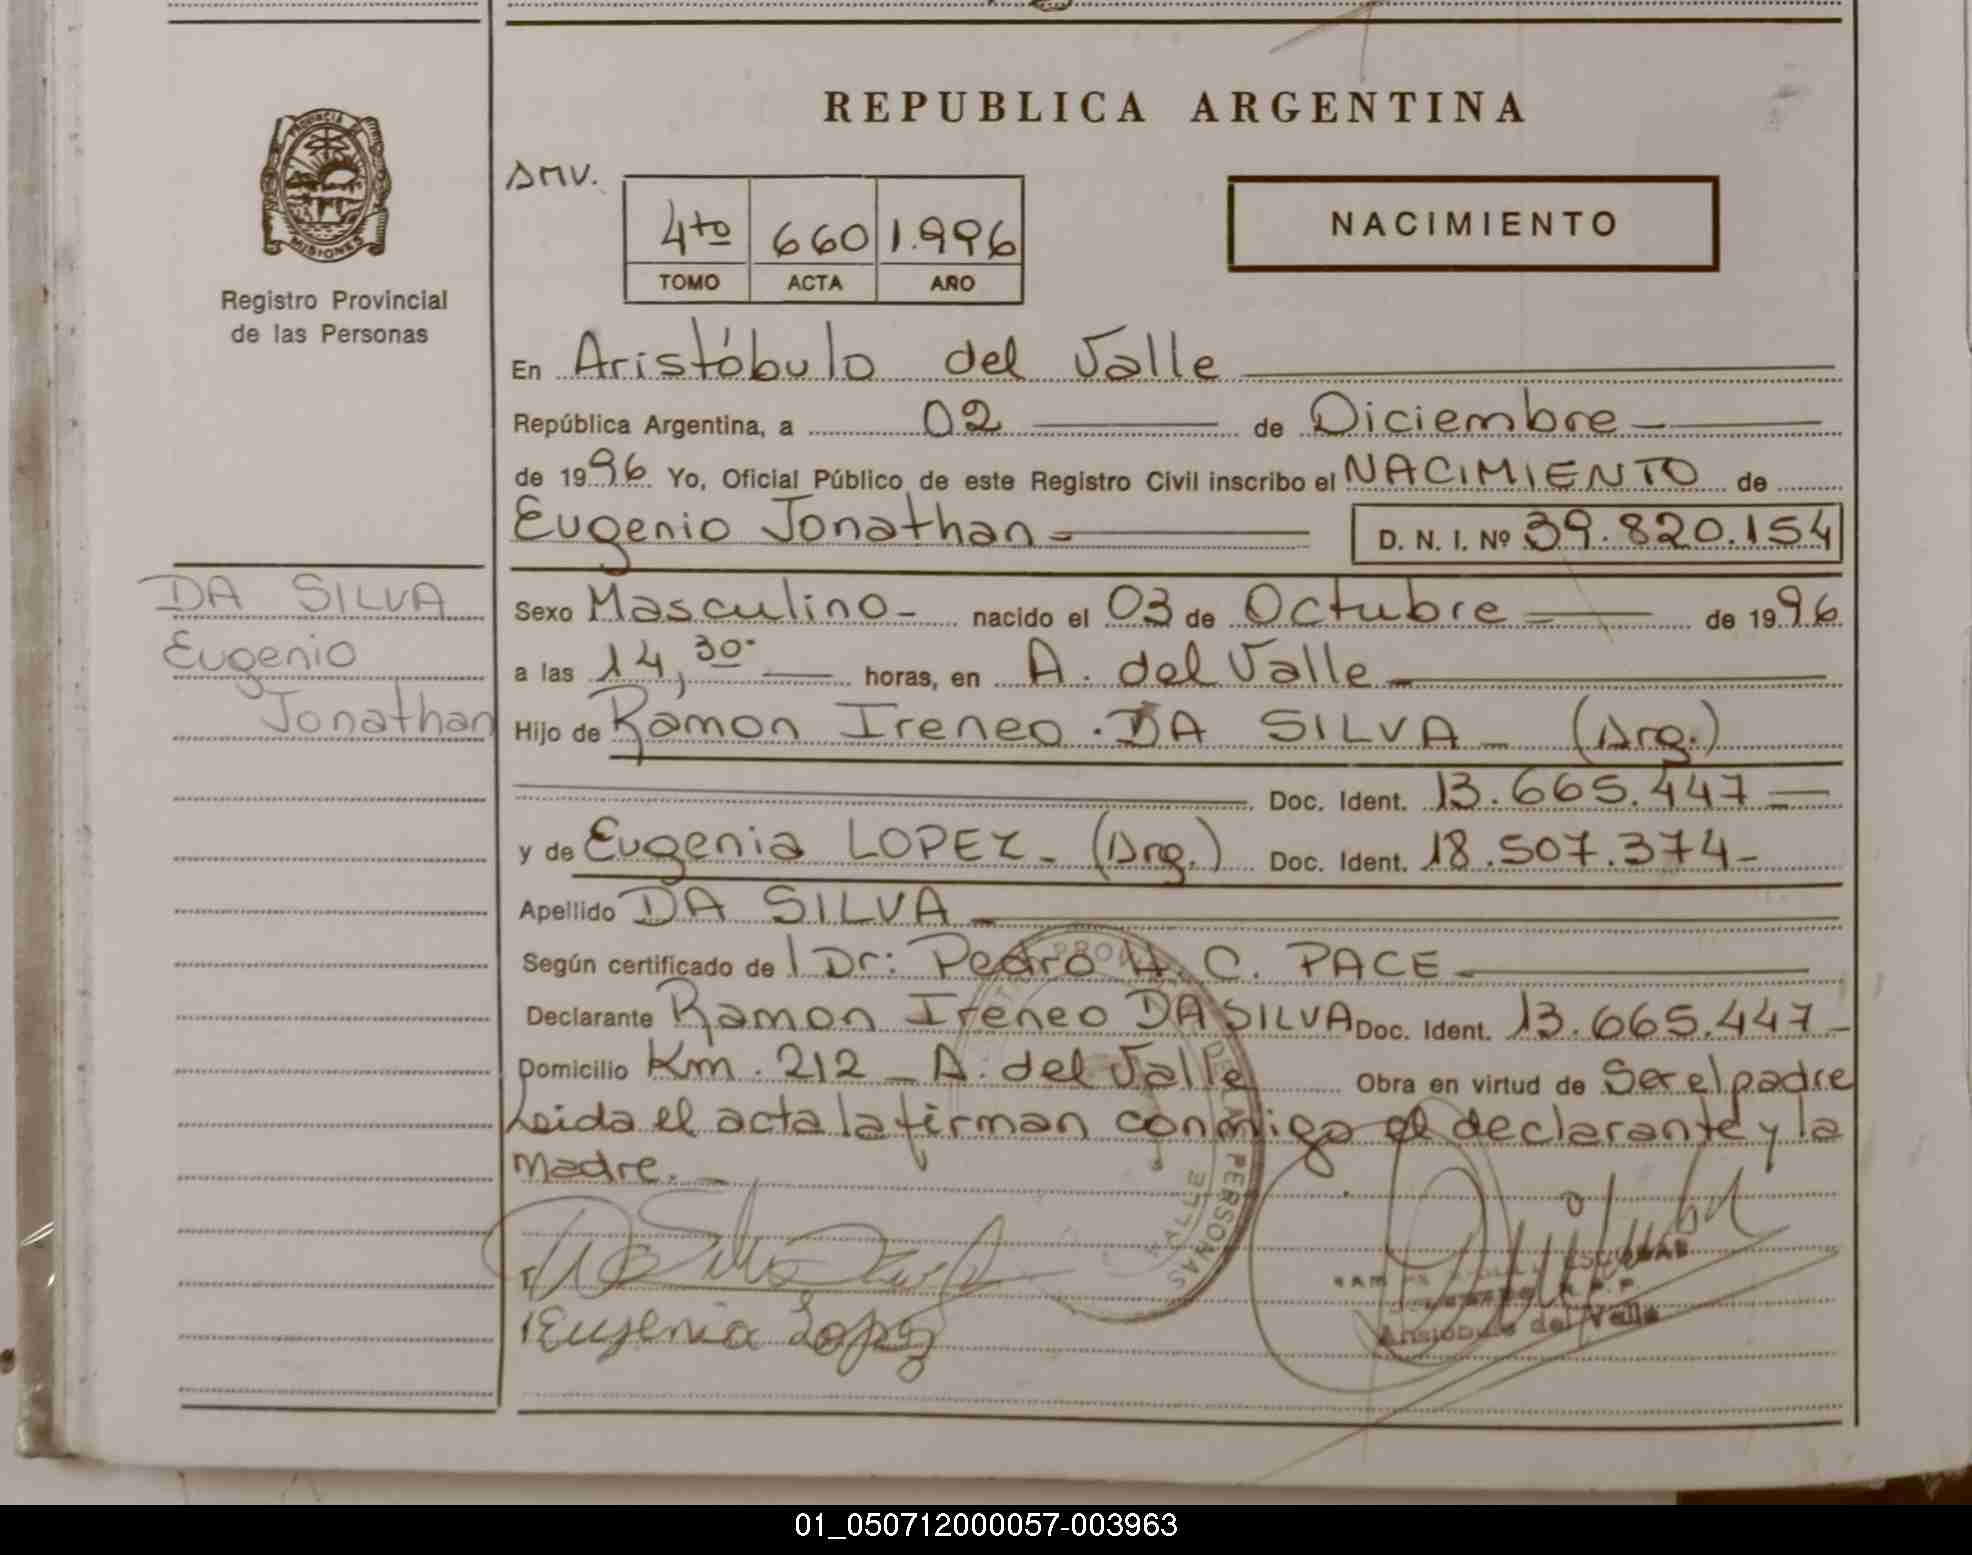 REPUBLICA ARGENTINA
PROVINCIA DE
MISIONES
Registro Provincial
de las Personas
4to 660 1.996
TOMO ACTA AÑO
NACIMIENTO
En Aristóbulo del Valle
República Argentina, a 02 de Diciembre
de 1996 Yo, Oficial Público de este Registro Civil inscribo el NACIMIENTO de
Eugenio Jonathan D. N. I. Nº 39.820.154
DA SILVA
Eugenio
Jonathan
Sexo Masculino nacido el 03 de Octubre de 1996
a las 14,30 horas, en A. del Valle
Hijo de Ramon Ireneo DA SILVA (Arg.)
Doc. Ident. 13.665.447
y de Eugenia LOPEZ (Arg.) Doc. Ident. 18.507.374
Apellido DA SILVA
Según certificado de Dr: Pedro H. C. PACE
Declarante Ramon Ireneo DA SILVA Doc. Ident. 13.665.447
Domicilio Km. 212 A. del Valle Obra en virtud de Ser el padre
Leida el acta la firman conmigo el declarante y la
Madre.
DE LAS PERSONAS
VALLE
Eugenia Lopez
Aristóbulo del Valle
01_050712000057-003963